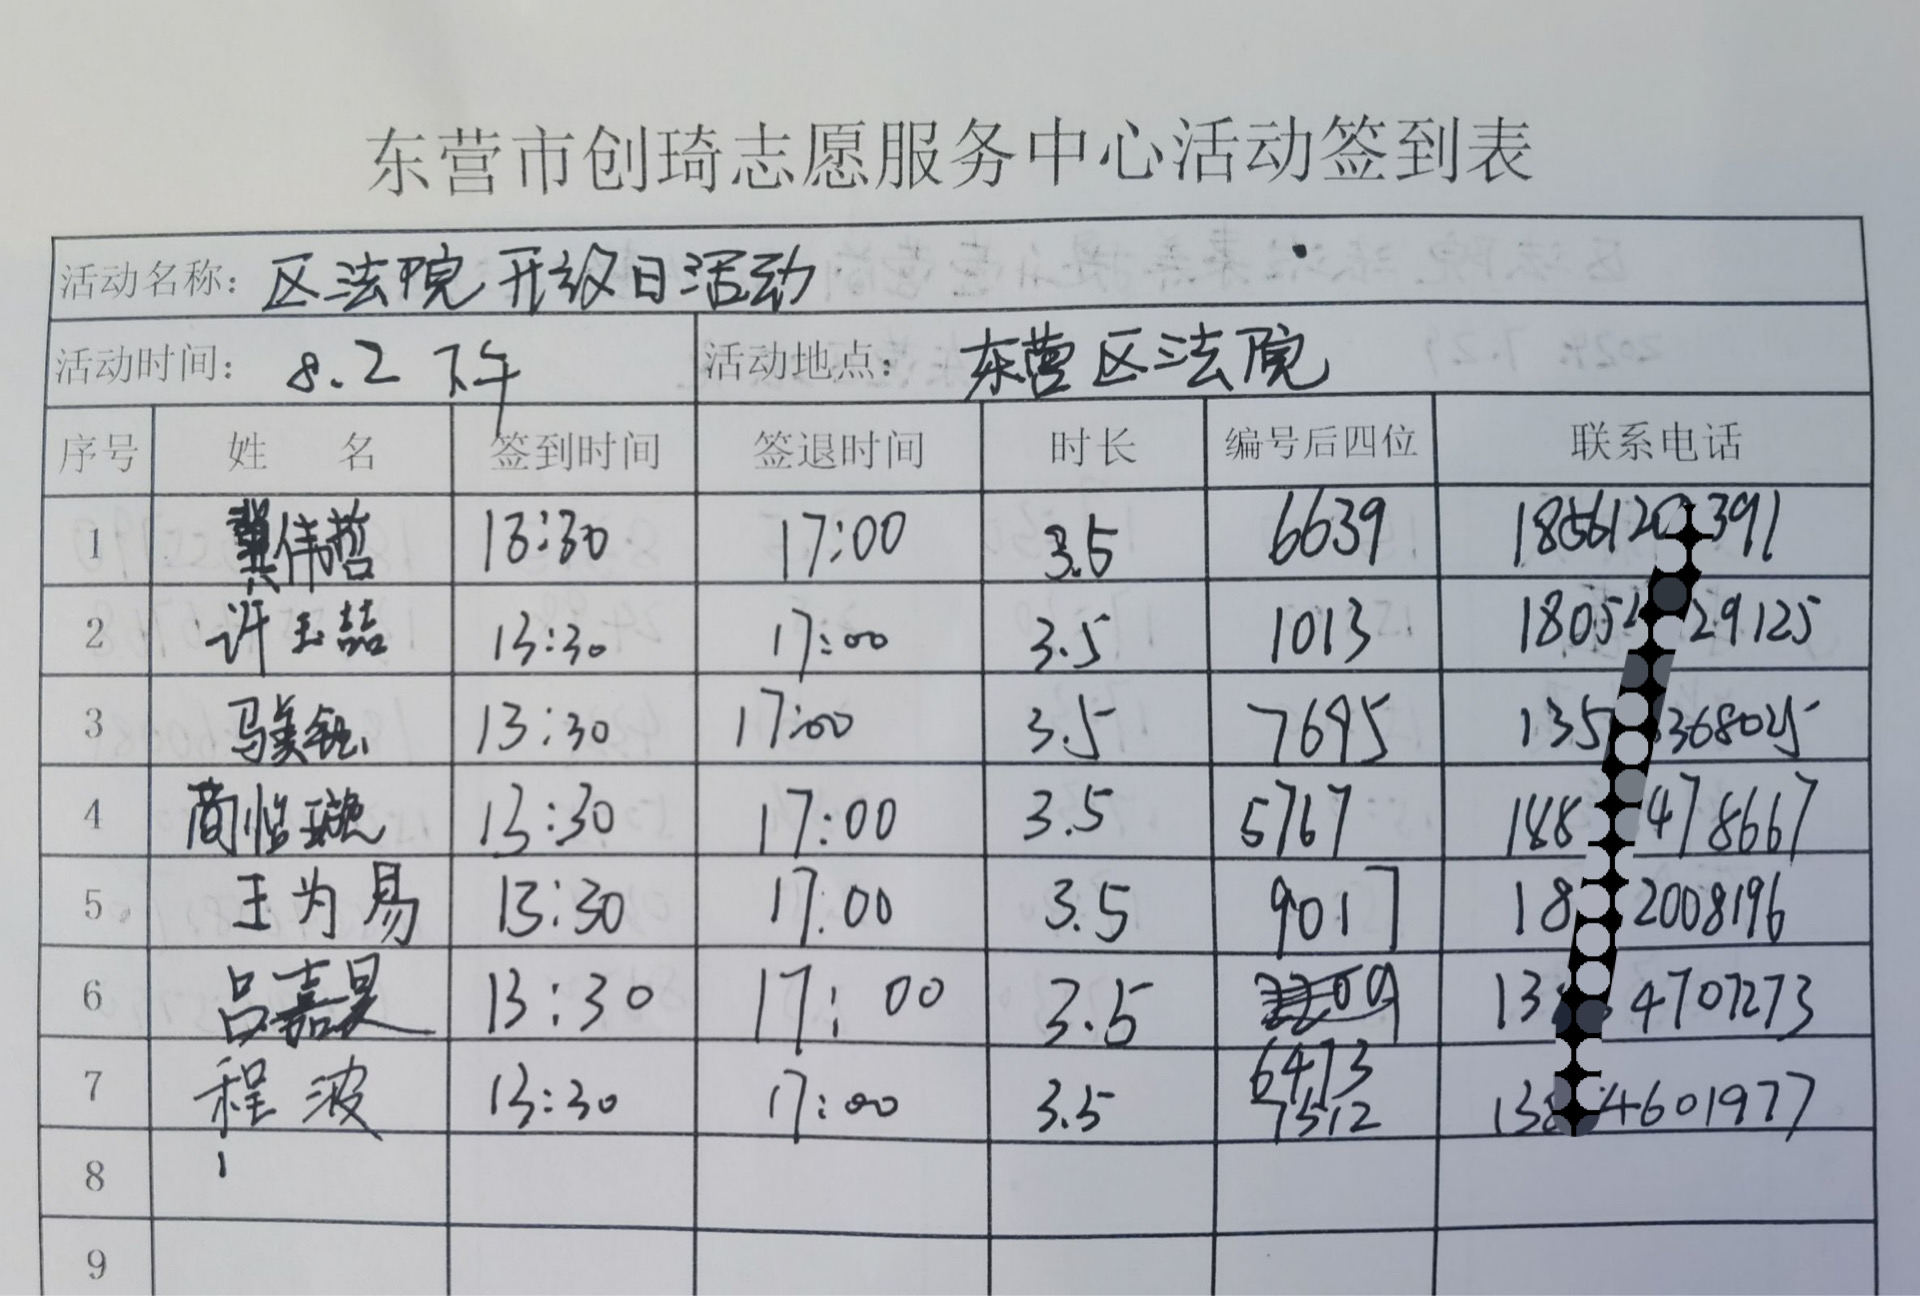 东营市创琦志愿服务中心活动签到表
活动名称: 区法院开放日活动
活动时间: 8.2 下午 活动地点: 东营区法院
序号 姓 名 签到时间 签退时间 时长 编号后四位 联系电话
1 冀伟哲 13:30 17:00 3.5 6639 185612 391
2 许玉喆 13:30 17:00 3.5 1013 1805 29125
3 13:30 17:00 3.5 7695 135 368025
4 13:30 17:00 3.5 5767 188 478667
5 王为易 13:30 17:00 3.5 9017 18 2008196
6 吕嘉昊 13:30 17:00 3.5 6473 13 4707273
7 程波 13:30 17:00 3.5 7512 138 4601977
8
9